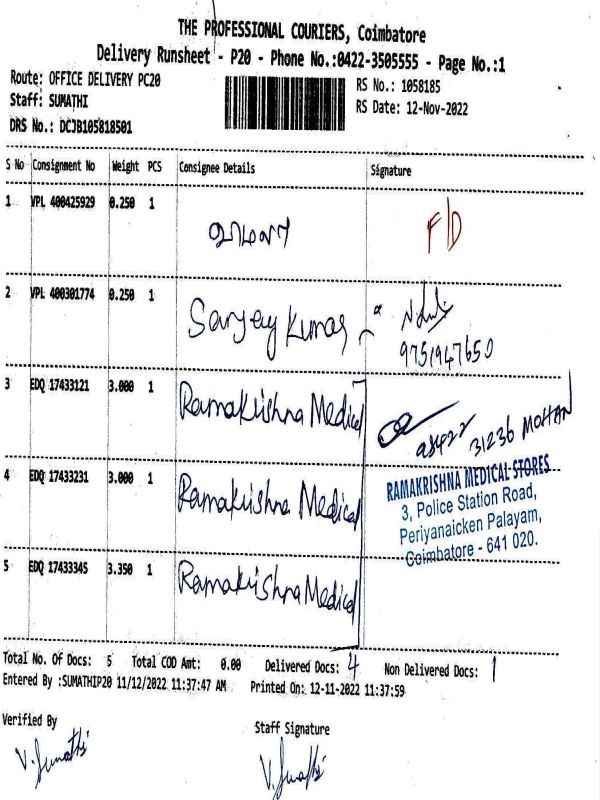 THE PROFESSIONAL COURIERS, Coimbatore
Delivery Runsheet - P20 - Phone No.:0422-3505555 - Page No.:1
Route: OFFICE DELIVERY PC20
RS No.: 1058185
Staff: SUMATHI
RS Date: 12-Nov-2022
DRS No.: DCJB105818501
S No Consignment No Weight PCS Consignee Details Signature
1 VPL 400425929 0.250 1 F/D
2 VPL 400301774 0.250 1 Sanjay Kumar
9751947650
3 EDQ 17433121 3.000 1 Ramakrishna Medical
31236 MOHAN
4 EDQ 17433231 3.000 1 Ramakrishna Medical
RAMAKRISHNA MEDICAL STORES
3, Police Station Road,
Periyanaicken Palayam,
Coimbatore - 641 020.
5 EDQ 17433345 3.350 1 Ramakrishna Medical
Total No. Of Docs: 5 Total COD Amt: 0.00 Delivered Docs: 4 Non Delivered Docs: 1
Entered By :SUMATHIP20 11/12/2022 11:37:47 AM Printed On: 12-11-2022 11:37:59
Verified By Staff Signature
V. Sumathi V. Sumathi